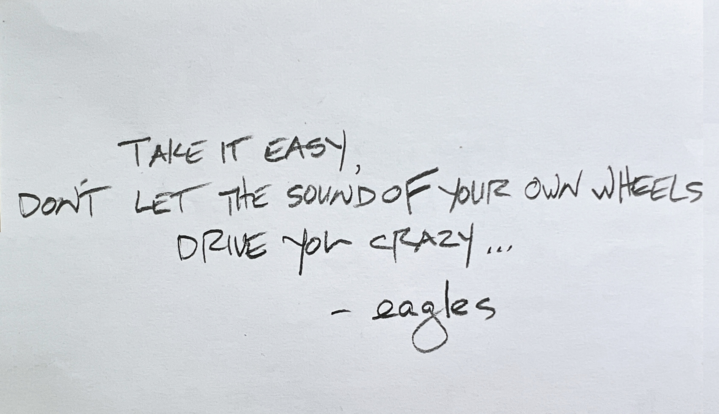 TAKE IT EASY,
DON'T LET THE SOUND OF YOUR OWN WHEELS
DRIVE YOU CRAZY...
- eagles